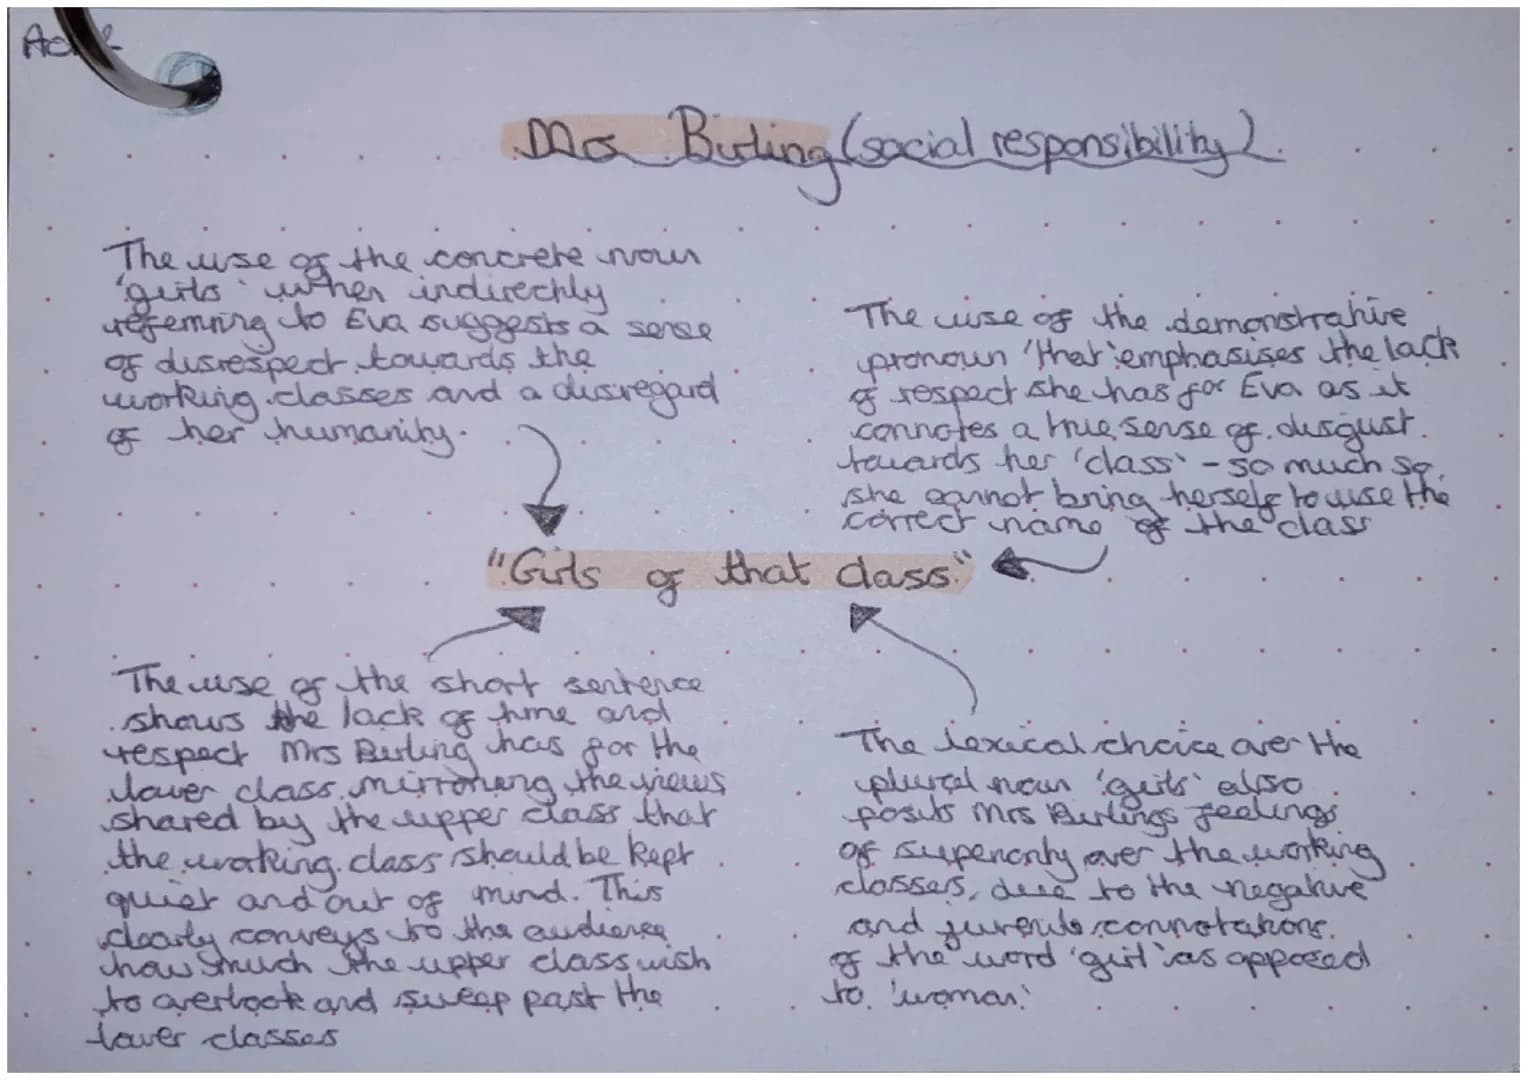 Act 2
Mrs Birling (social responsibility)
The use of the concrete noun
'girls' when indirectly
referring to Eva suggests a sense
of disrespect towards the
working classes and a disregard
of her humanity.
The use of the demonstrative
pronoun 'that' emphasises the lack
of respect she has for Eva as it
connotes a true sense of disgust
towards her 'class' - so much so,
she cannot bring herself to use the
correct name of the class
"Girls of that class."
The use of the short sentence
shows the lack of time and
respect Mrs Birling has for the
lower class, mirroring the views
shared by the upper class that
the working class should be kept
quiet and out of mind. This
clearly conveys to the audience
how much the upper class wish
to overlook and sweep past the
lower classes
The lexical choice over the
plural noun 'girls' also
posits Mrs Birlings feelings
of superiority over the working
classes, due to the negative
and juvenile connotations
of the word 'girl' as opposed
to 'woman'